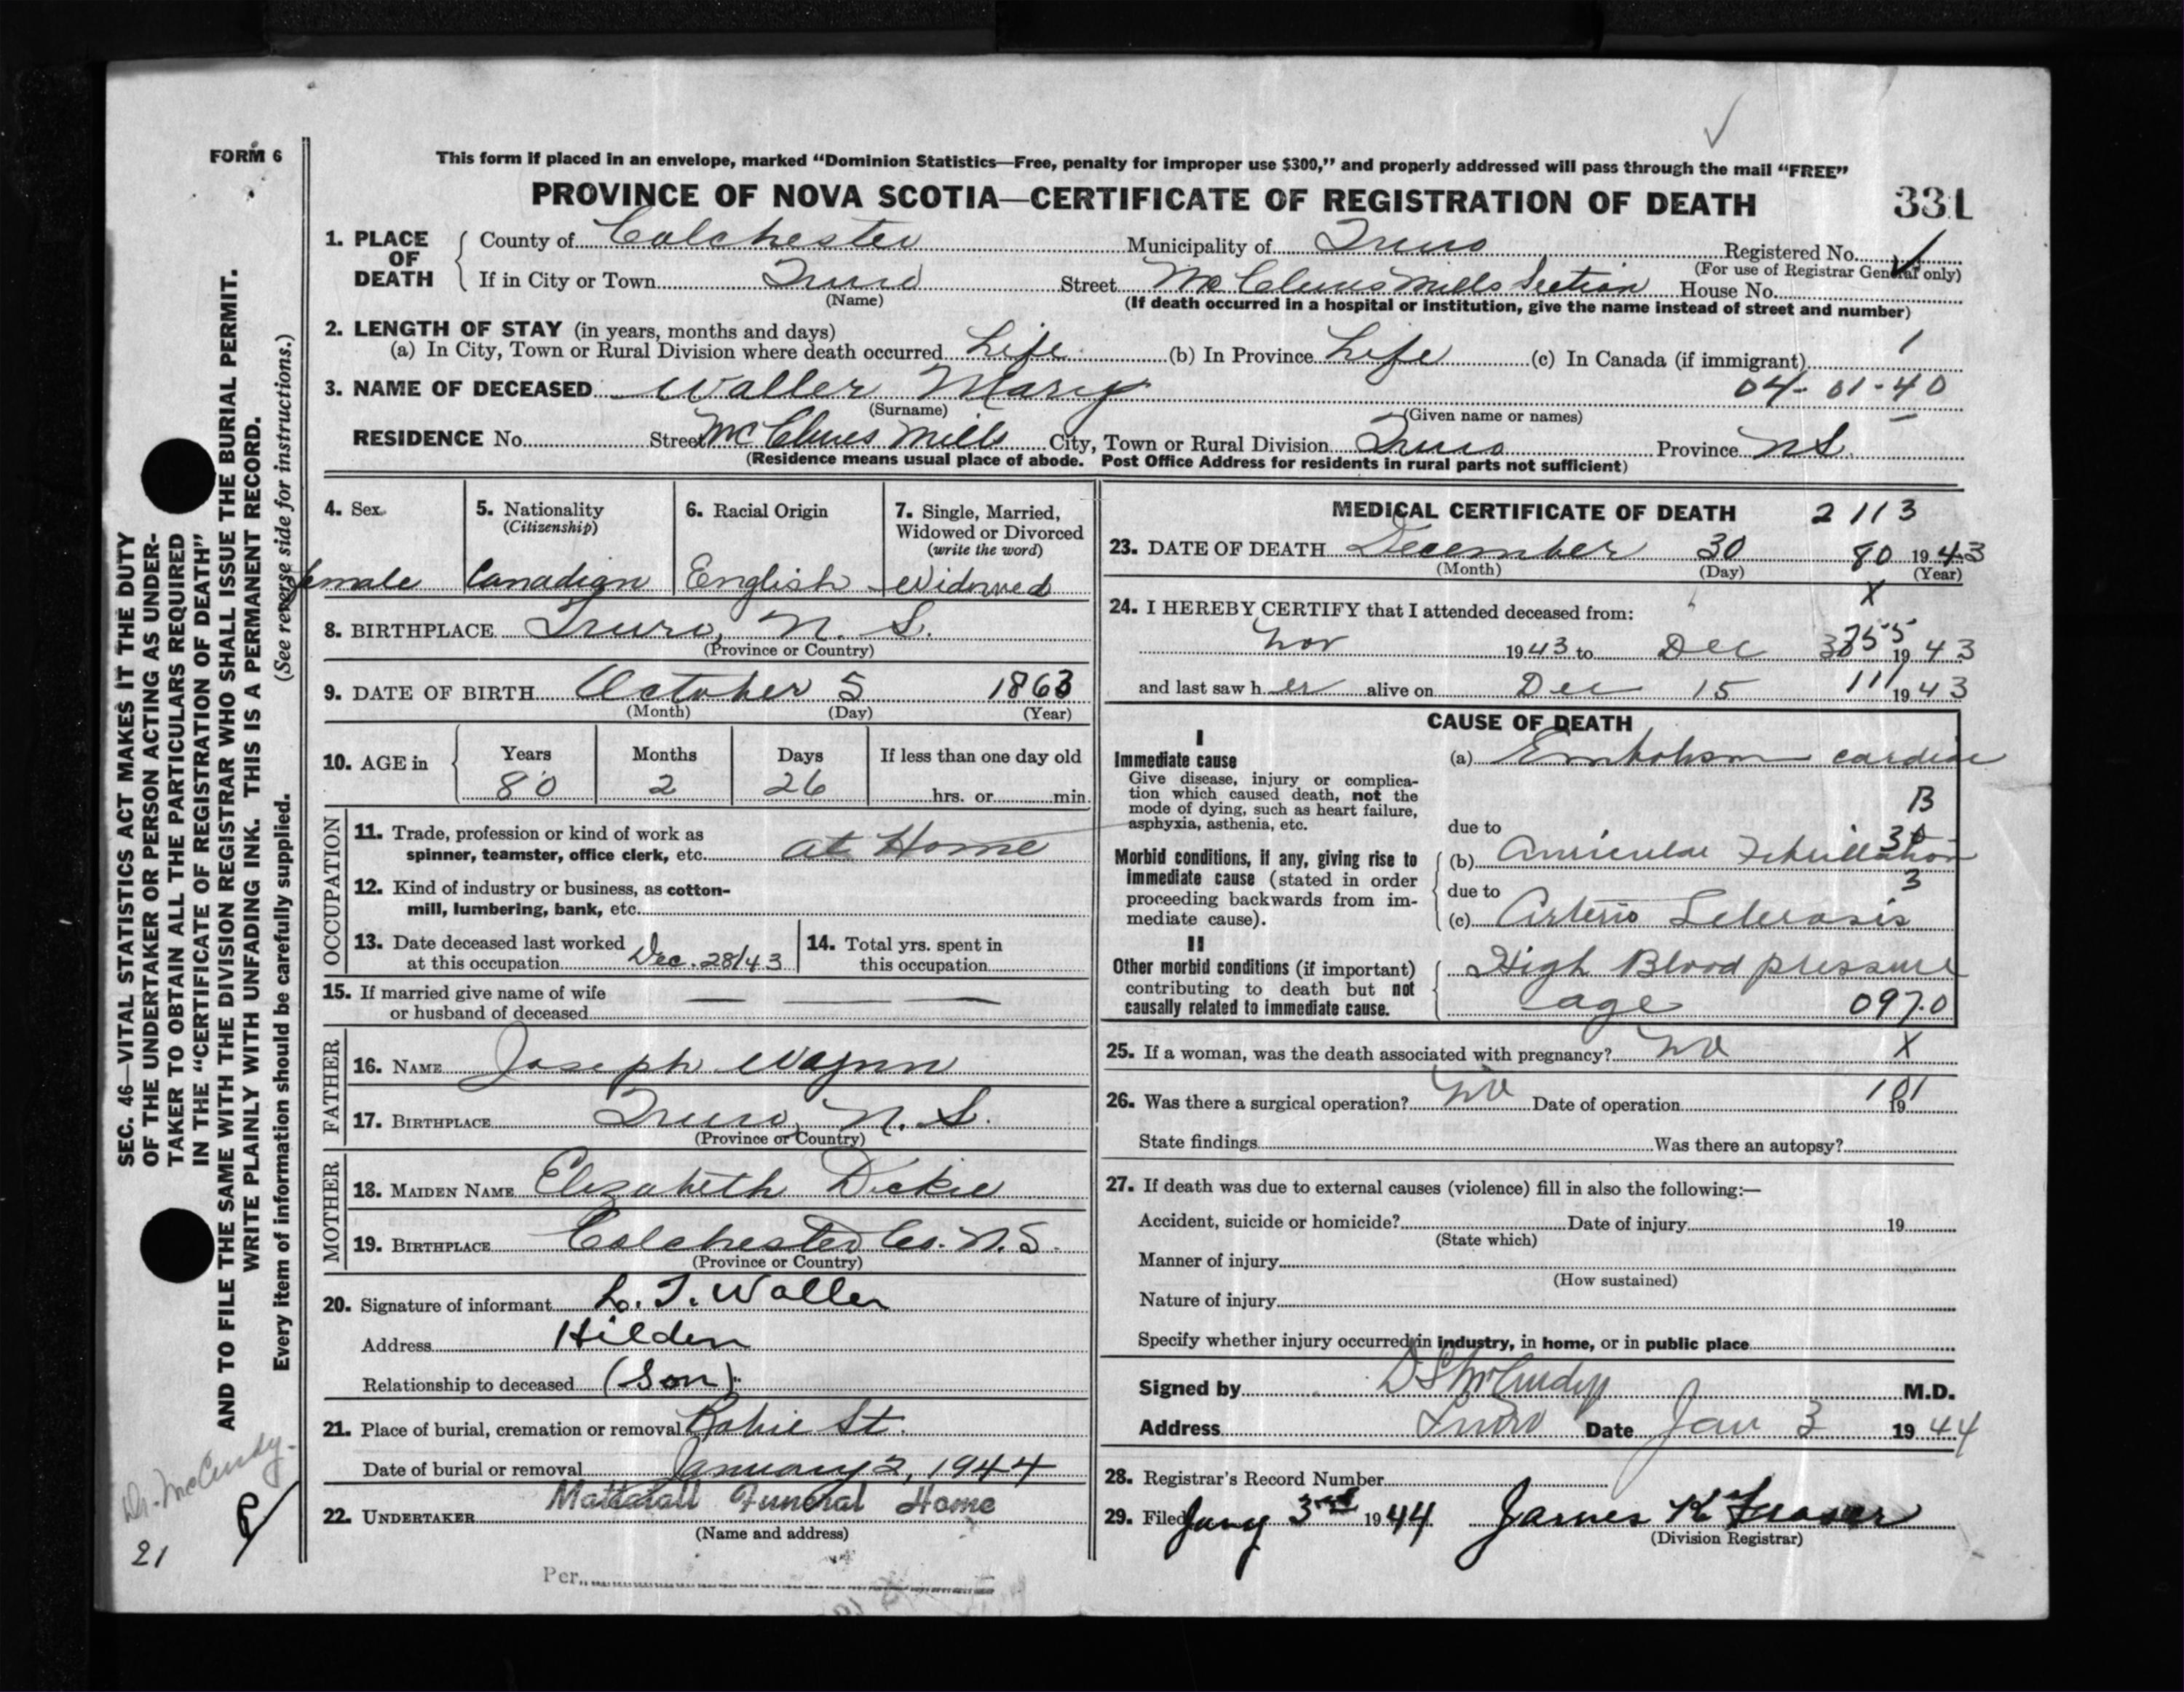 FORM 6
This form if placed in an envelope, marked “Dominion Statistics—Free, penalty for improper use $300,” and properly addressed will pass through the mail “FREE”
PROVINCE OF NOVA SCOTIA—CERTIFICATE OF REGISTRATION OF DEATH
331
1. PLACE OF DEATH
County of Colchester Municipality of Truro Registered No.
(For use of Registrar General only)
If in City or Town Truro Street McClures Mills Section House No.
(Name) (If death occurred in a hospital or institution, give the name instead of street and number)
2. LENGTH OF STAY (in years, months and days)
(a) In City, Town or Rural Division where death occurred Life (b) In Province Life (c) In Canada (if immigrant) 1
3. NAME OF DECEASED Waller Mary 04-01-40
(Surname) (Given name or names)
RESIDENCE No. Street McClures Mills City, Town or Rural Division Truro Province N.S.
(Residence means usual place of abode. Post Office Address for residents in rural parts not sufficient)
4. Sex female
5. Nationality (Citizenship) Canadian
6. Racial Origin English
7. Single, Married, Widowed or Divorced (write the word) Widowed
8. BIRTHPLACE Truro, N. S.
(Province or Country)
9. DATE OF BIRTH October 5 1863
(Month) (Day) (Year)
10. AGE in Years 80 Months 2 Days 26 If less than one day old
hrs. or min.
OCCUPATION
11. Trade, profession or kind of work as
spinner, teamster, office clerk, etc. at Home
12. Kind of industry or business, as cotton-
mill, lumbering, bank, etc.
13. Date deceased last worked
at this occupation Dec. 28/43
14. Total yrs. spent in
this occupation
15. If married give name of wife
or husband of deceased
FATHER
16. NAME Joseph Wynn
17. BIRTHPLACE Truro, N. S.
(Province or Country)
MOTHER
18. MAIDEN NAME Elizabeth Dickie
19. BIRTHPLACE Colchester Co. N.S.
(Province or Country)
20. Signature of informant L. T. Waller
Address Hilden
Relationship to deceased (Son)
21. Place of burial, cremation or removal Robie St.
Date of burial or removal January 2, 1944
22. UNDERTAKER Mattatall Funeral Home
(Name and address)
Per
MEDICAL CERTIFICATE OF DEATH 2113
23. DATE OF DEATH December 30 80 1943
(Month) (Day) (Year)
X
24. I HEREBY CERTIFY that I attended deceased from:
Nov 1943 to Dec 1943
and last saw her alive on Dec 15 111 1943
CAUSE OF DEATH
I
Immediate cause
Give disease, injury or complica-
tion which caused death, not the
mode of dying, such as heart failure,
asphyxia, asthenia, etc.
(a) Embolism cardiac
B
due to
30
Morbid conditions, if any, giving rise to
immediate cause (stated in order
proceeding backwards from im-
mediate cause).
(b) Auricular Fibrillation
due to 3
(c) Arterio Sclerosis
II
Other morbid conditions (if important)
contributing to death but not
causally related to immediate cause.
High Blood pressure
age 097.0
25. If a woman, was the death associated with pregnancy? No X
26. Was there a surgical operation? No Date of operation 19 101
State findings Was there an autopsy?
27. If death was due to external causes (violence) fill in also the following:—
Accident, suicide or homicide? Date of injury 19
(State which)
Manner of injury
(How sustained)
Nature of injury
Specify whether injury occurred in industry, in home, or in public place
Signed by D S McCurdy M.D.
Address Truro Date Jan 3 1944
28. Registrar's Record Number
29. Filed Jany 3rd 1944 James K Fraser
(Division Registrar)
SEC. 46—VITAL STATISTICS ACT MAKES IT THE DUTY
OF THE UNDERTAKER OR PERSON ACTING AS UNDER-
TAKER TO OBTAIN ALL THE PARTICULARS REQUIRED
IN THE “CERTIFICATE OF REGISTRATION OF DEATH”
AND TO FILE THE SAME WITH THE DIVISION REGISTRAR WHO SHALL ISSUE THE BURIAL PERMIT.
WRITE PLAINLY WITH UNFADING INK. THIS IS A PERMANENT RECORD.
Every item of information should be carefully supplied. (See reverse side for instructions.)
Dr. McCurdy.
21